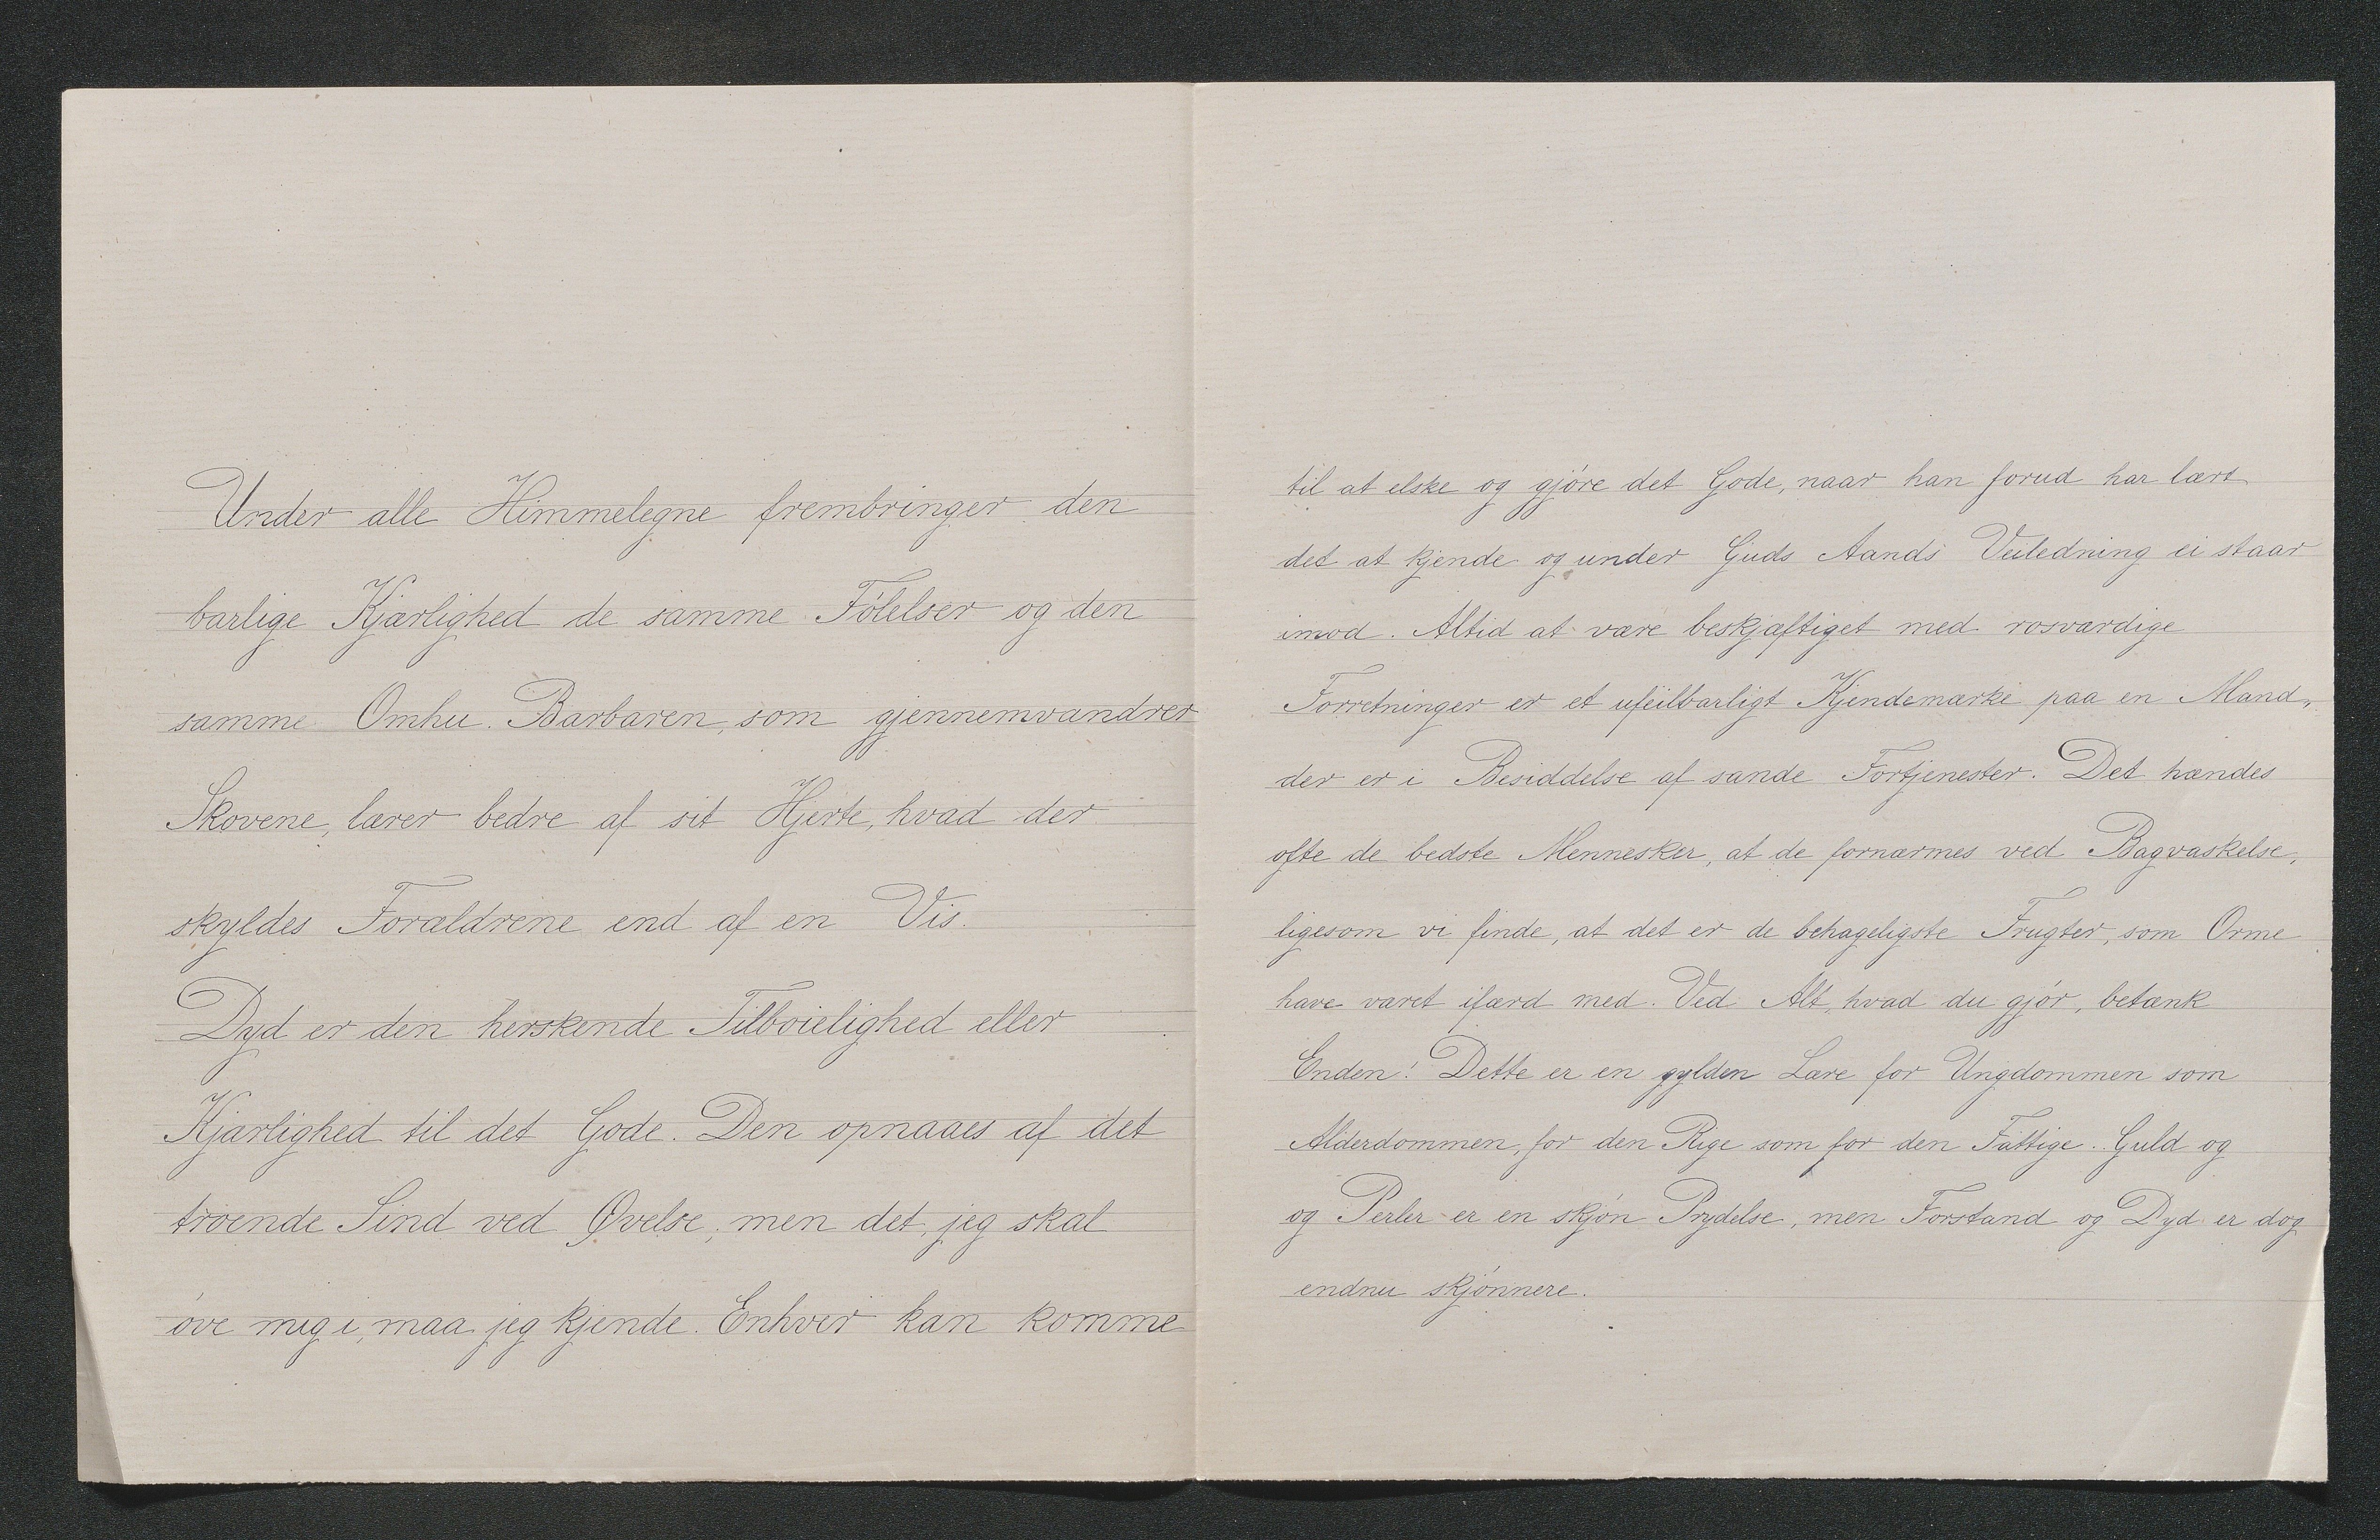 Under alle Himmelegne frembringer den
barlige Kjærlighed de samme Følelser og den
samme Omhu. Barbaren, som gjennemvandrer
Skovene, lærer bedre af sit Hjerte, hvad der
skyldes Forældrene end af en Vis.
Dyd er den herskende Tilbøielighed eller
Kjærlighed til det Gode. Den opnaaes af det
troende Sind ved Øvelse; men det, jeg skal
øve mig i, maa jeg kjende. Enhver kan komme
til at elske og gjøre det Gode, naar han forud har lært
det at kjende og under Guds Aands Veiledning ei staar
imod. Altid at være beskjæftiget med rosværdige
Forretninger er et ufeilbarligt Kjendemærke paa en Mand,
der er i Besiddelse af sande Fortjenester. Det hændes
ofte de bedste Mennesker, at de fornærmes ved Bagvaskelse,
ligesom vi finde, at det er de behageligste Frugter, som Orme
have været ifærd med. Ved Alt, hvad du gjør, betænk
Enden! Dette er en gylden Lære for Ungdommen som
Alderdommen, for den Rige som for den Fattige. Guld og
og Perler er en skjøn Prydelse, men Forstand og Dyd er dog
endnu skjønnere.